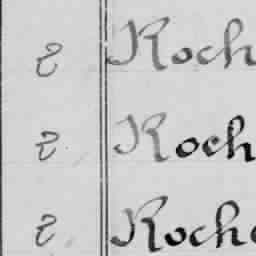 2 Roch
2 Roch
2 Roch